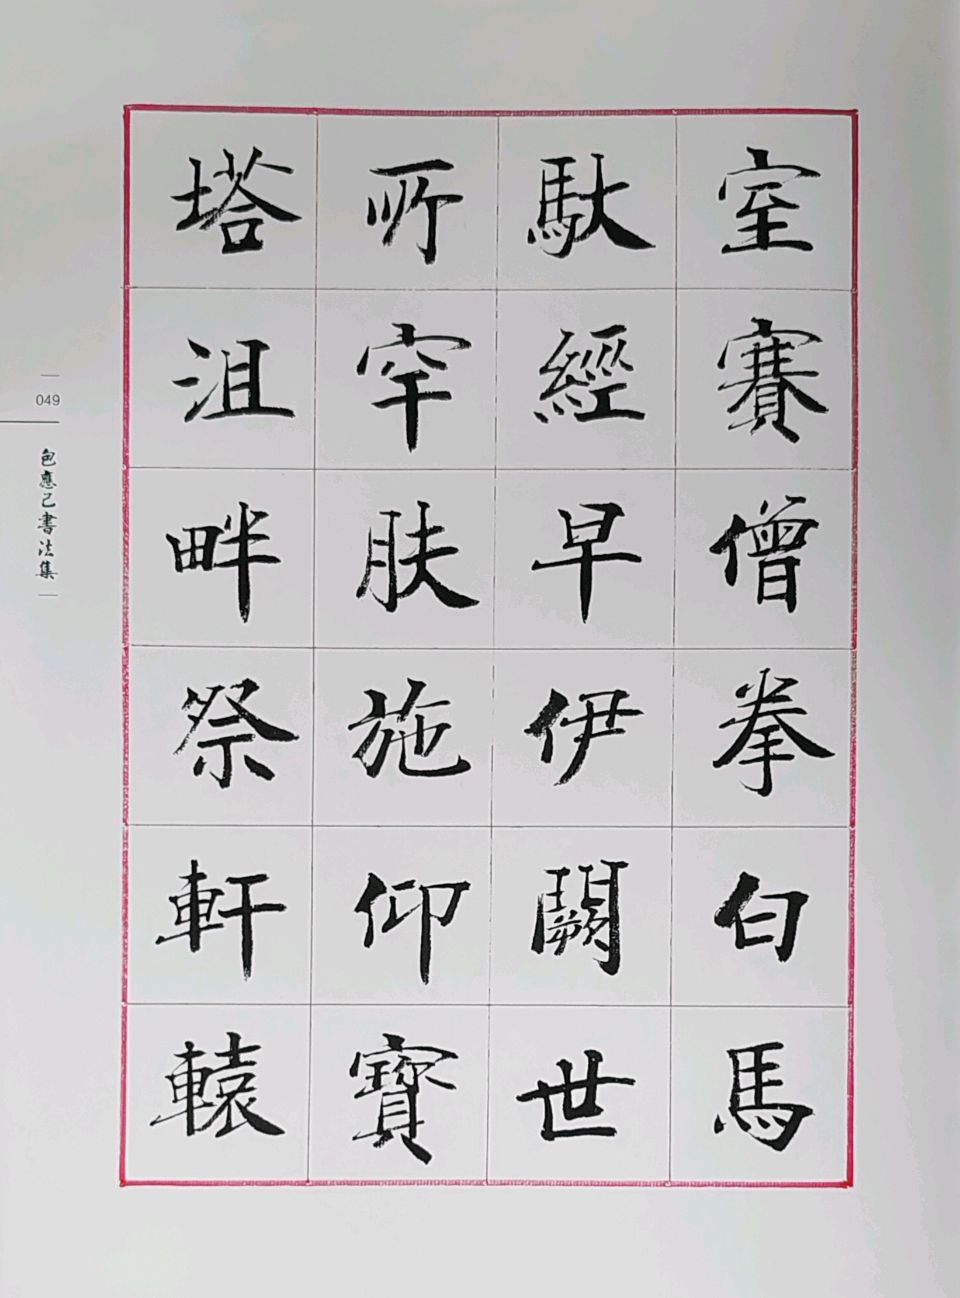 室賽僧拳白馬
馱經早伊闕世
所罕膚施仰寶
塔沮畔祭軒轅
049
包應己書法集